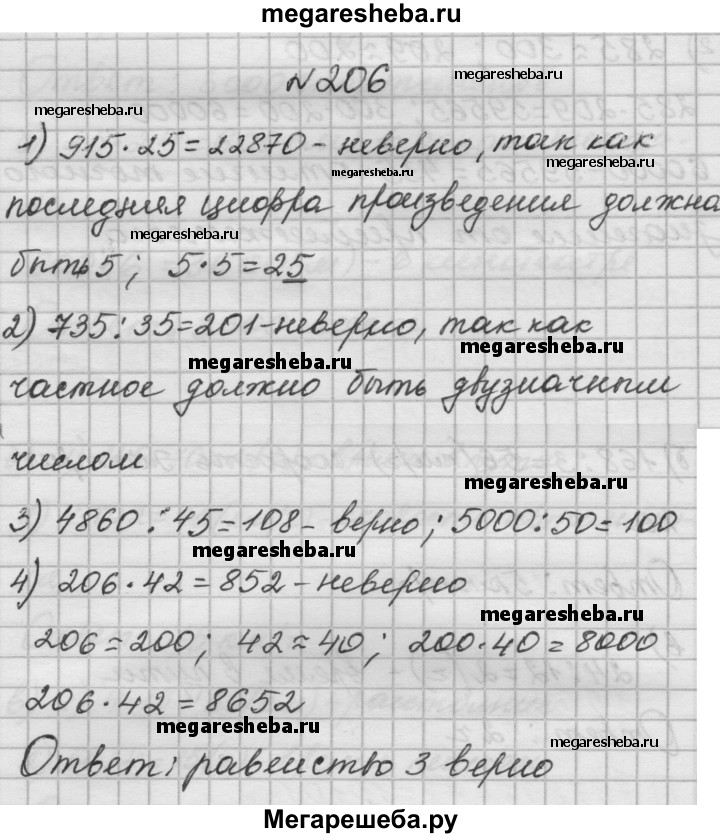 megaresheba.ru
№206
megaresheba.ru
megaresheba.ru
1) 915·25=22870 - неверно, так как
megaresheba.ru
megaresheba.ru
последняя цифра произведения должна
megaresheba.ru
быть 5; 5·5=25
2) 735:35=201-неверно, так как
megaresheba.ru
megaresheba.ru
частное должно быть двузначным
числом
megaresheba.ru
3) 4860:45=108- верно; 5000:50=100
megaresheba.ru
4) 206·42=852-неверно
megaresheba.ru
206≈200; 42≈40; 200·40=8000
206·42=8652
megaresheba.ru
megaresheba.ru
Ответ: равенство 3 верно
Мегарешеба.ру